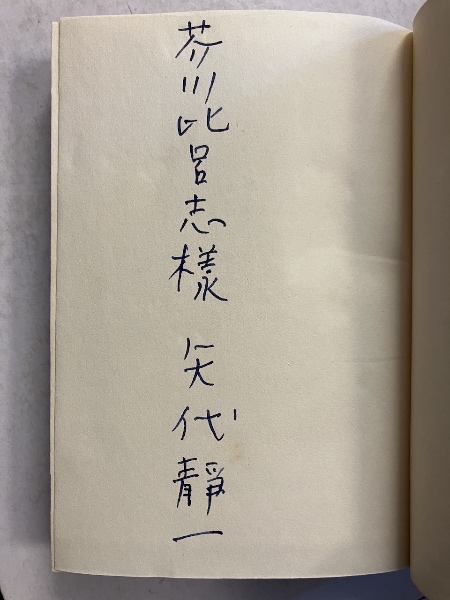 芥川比呂志様 矢代静一